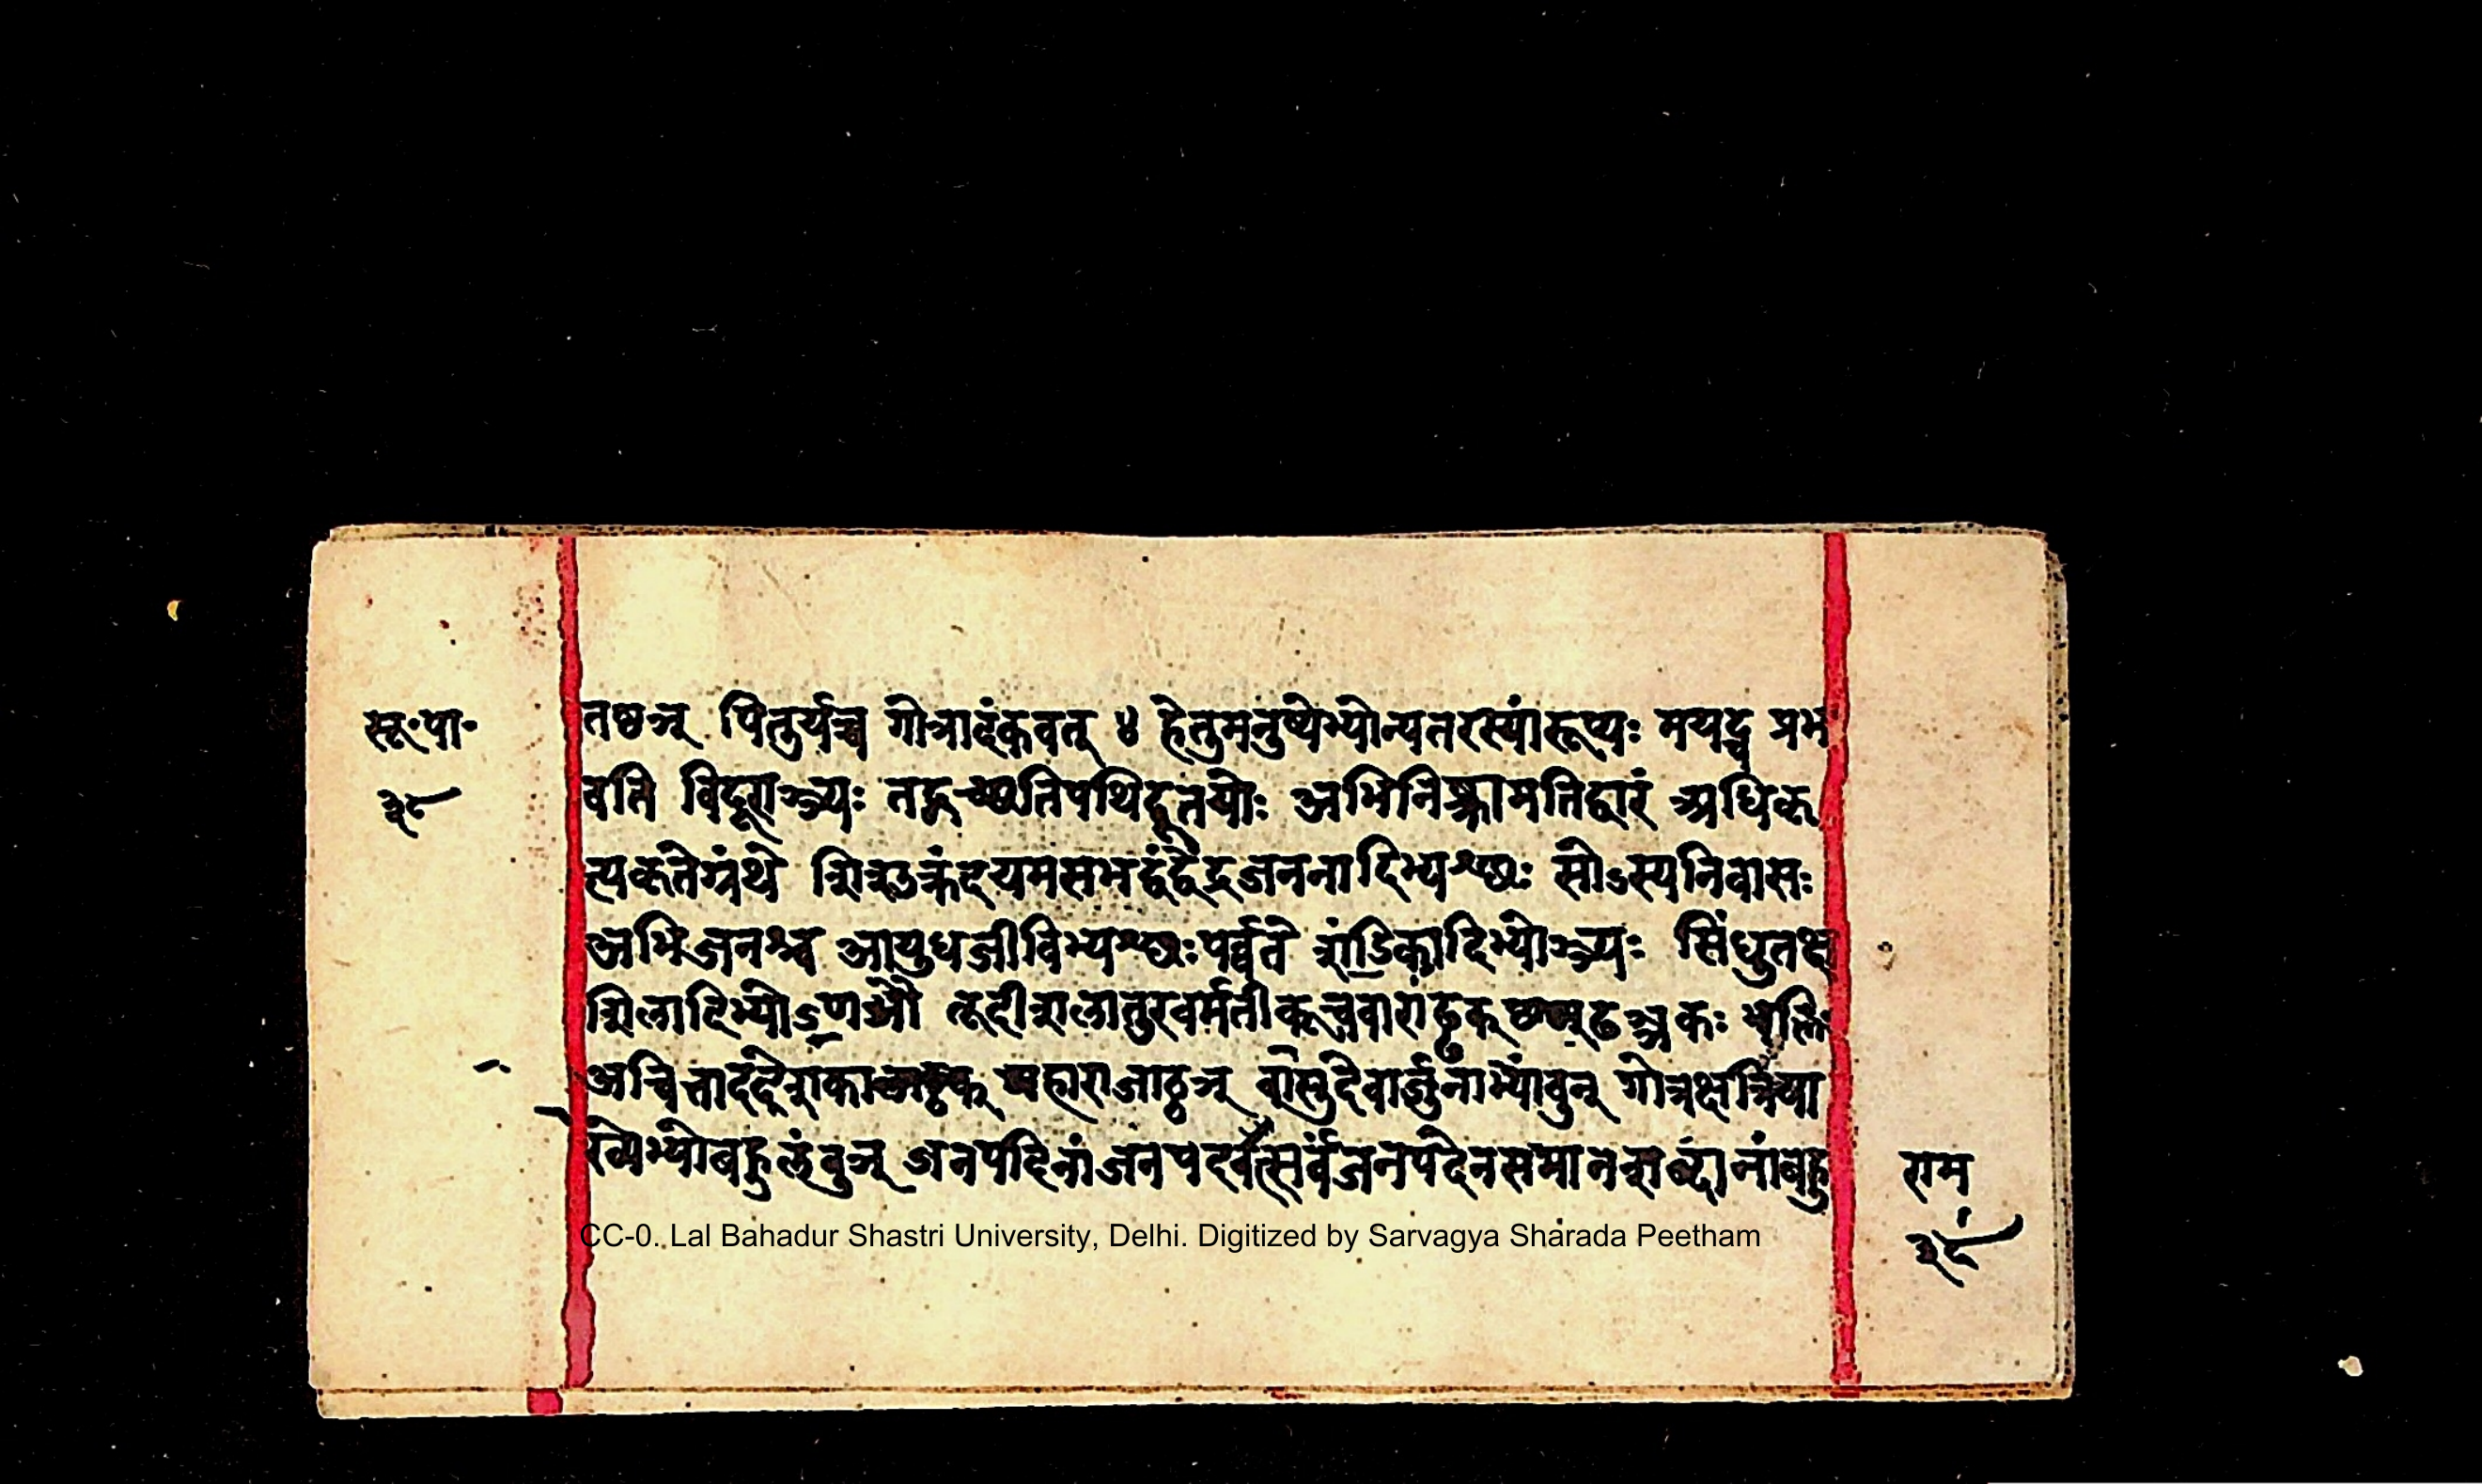 सू॰पा॰
३८
तष्ठञ् पितुर्यच्च गोत्रादंकवत् ४ हेतुमनुष्येभ्योन्यतरस्यांरूप्यः मयट्च प्रभ
वति विदूराञ्ञ्यः तद्गच्छतिपथिदूतयोः अभिनिष्क्रामतिद्वारं अधिकृ
त्यकृतेग्रंथे शिशुक्रंदयमसभद्वंद्वेंद्रजननादिभ्यश्छः सोऽस्यनिवासः
अभिजनश्च आयुधजीविभ्यश्छःपर्वते शंडिकादिभ्योञ्यः सिंधुतक्ष
शिलादिभ्योऽणञौ तूदीशलातुरवर्मतीकूचवाराड्ढक्छण्ढञ्यकः भक्तिः
अचित्ताददेशकालाट्ठक् महाराजाट्ठञ् वासुदेवार्जुनाभ्यांवुन् गोत्रक्षत्रिया
ख्येभ्योबहुलंवुञ् जनपदिनांजनपदवत्सर्वंजनपदेनसमानशब्दानांबहु
राम
३८
CC-0. Lal Bahadur Shastri University, Delhi. Digitized by Sarvagya Sharada Peetham